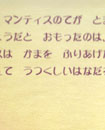 マンティスのてが と
ようだと おもったのは、
スは かまを ふりあげた
て うつくしいはなだそ